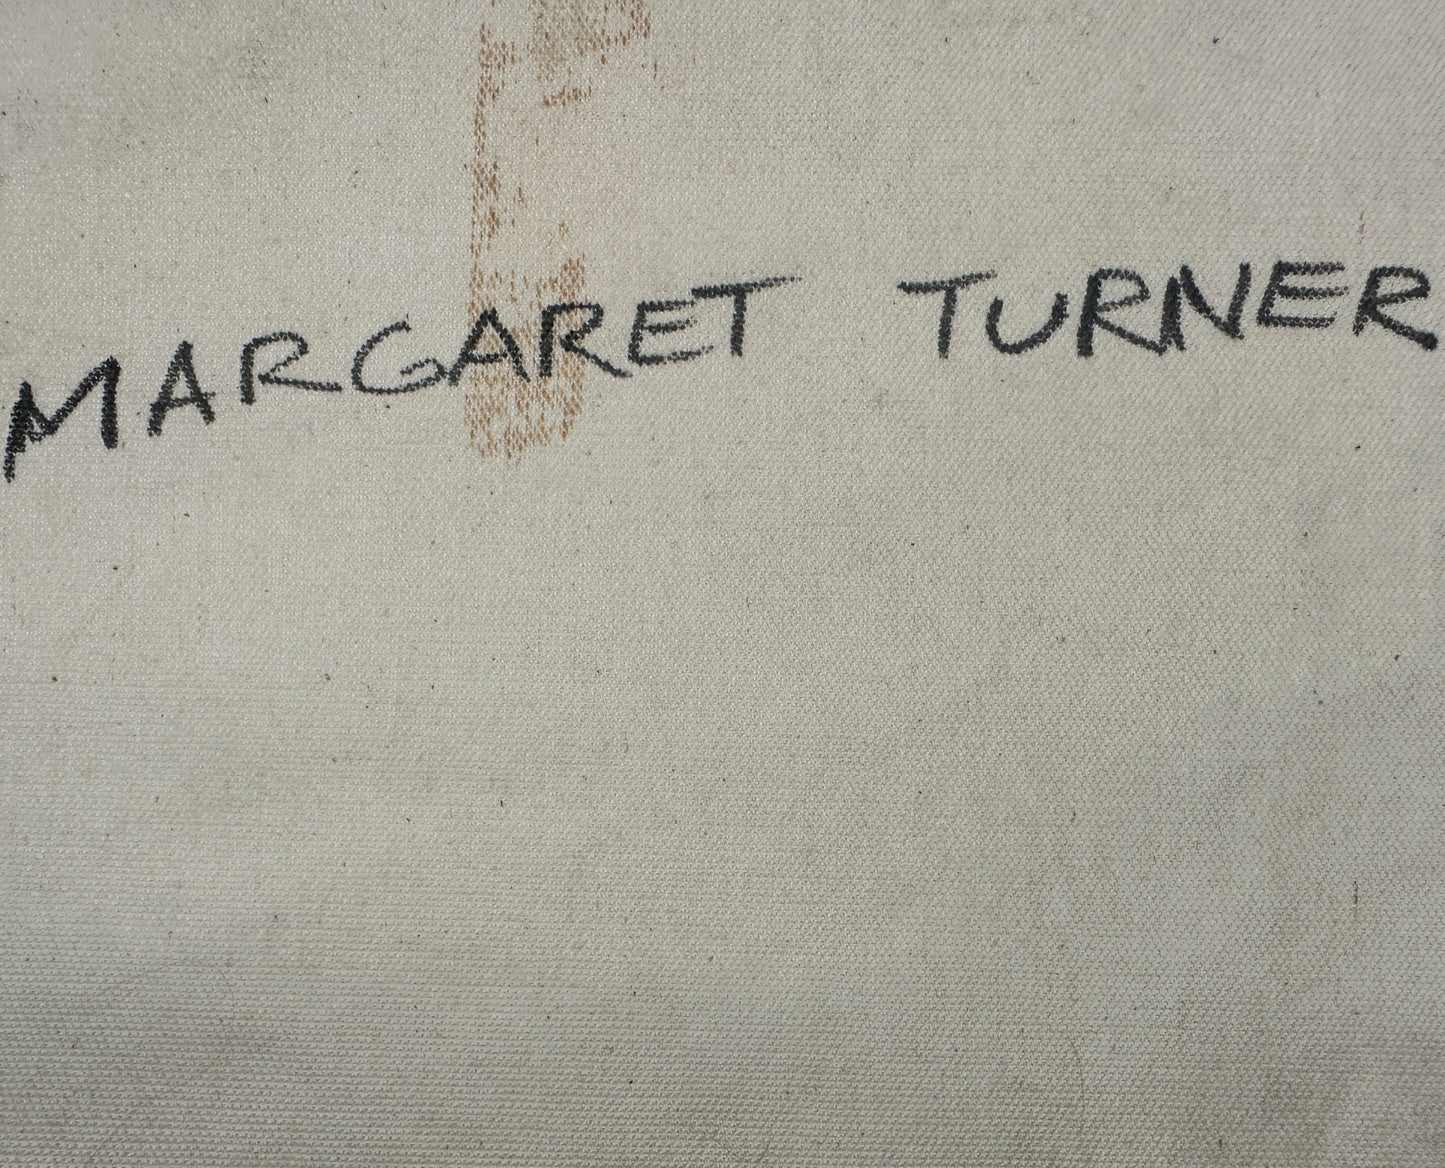 MARGARET TURNER